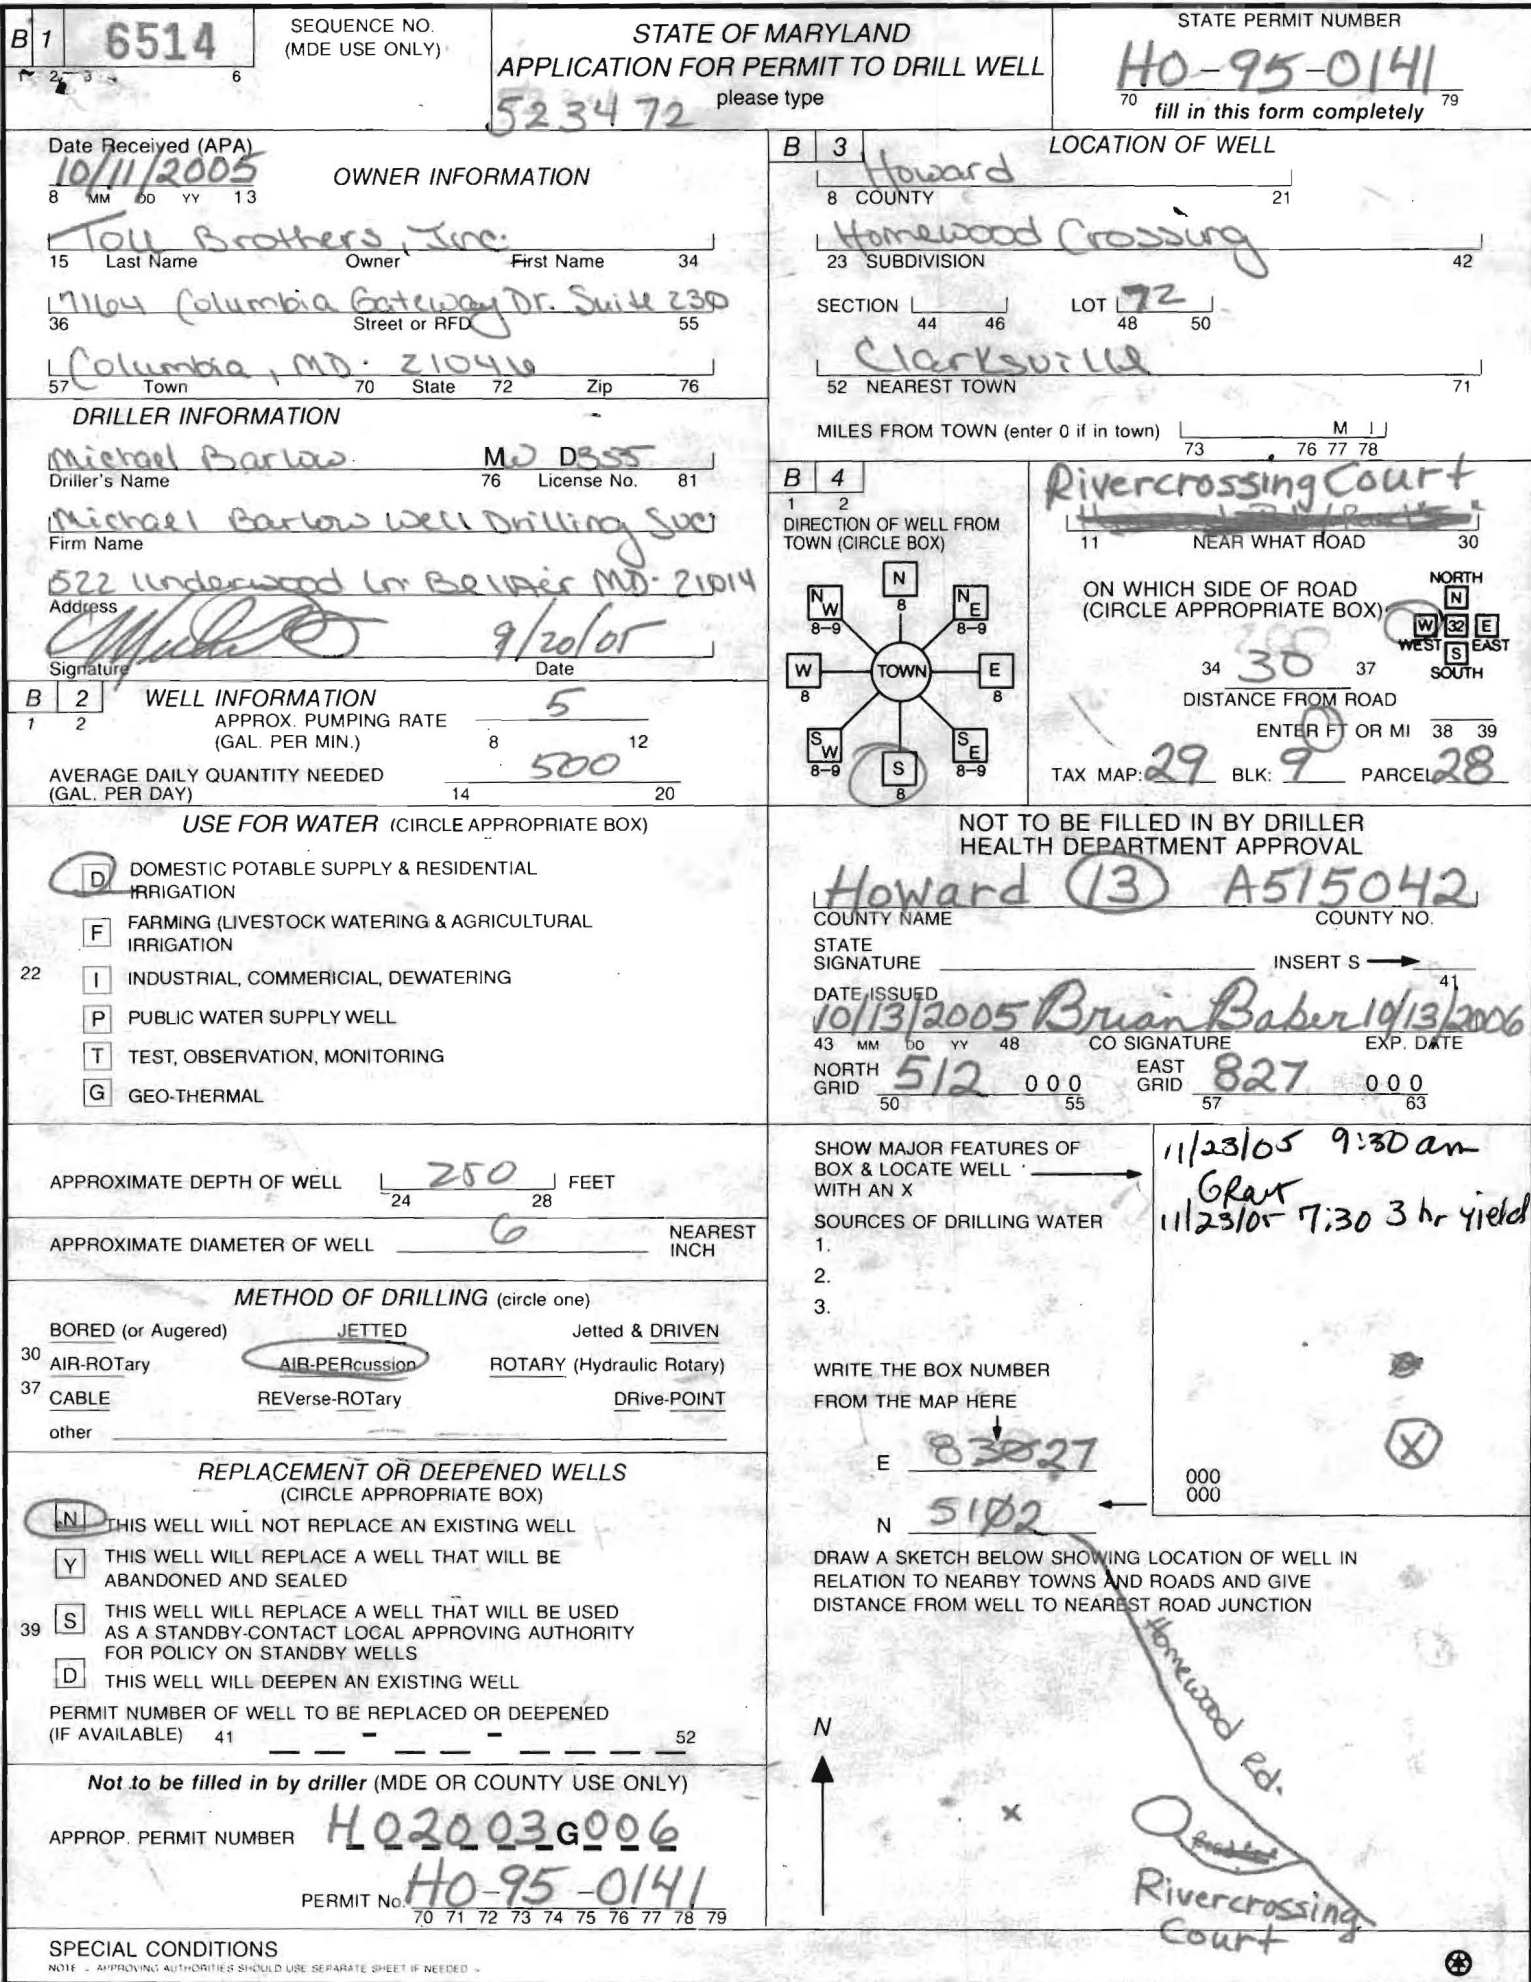 B 1 6514
1 2 3 6
SEQUENCE NO.
(MDE USE ONLY)
STATE OF MARYLAND
APPLICATION FOR PERMIT TO DRILL WELL
please type
523472
STATE PERMIT NUMBER
HO-95-0141
70 79
fill in this form completely
Date Received (APA)
10/11/2005
8 MM DD YY 13
OWNER INFORMATION
Toll Brothers, Inc.
15 Last Name Owner First Name 34
7164 Columbia Gateway Dr. Suite 230
36 Street or RFD 55
Columbia, MD. 21046
57 Town 70 State 72 Zip 76
DRILLER INFORMATION
Michael Barlow MW D355
Driller's Name 76 License No. 81
Michael Barlow Well Drilling
Firm Name
522 Underwood Ln Bel Air MD. 21014
Address
9/20/05
Signature Date
B 2 WELL INFORMATION
1 2
APPROX. PUMPING RATE 5
(GAL. PER MIN.) 8 12
AVERAGE DAILY QUANTITY NEEDED 500
(GAL. PER DAY) 14 20
USE FOR WATER (CIRCLE APPROPRIATE BOX)
D DOMESTIC POTABLE SUPPLY & RESIDENTIAL
IRRIGATION
F FARMING (LIVESTOCK WATERING & AGRICULTURAL
IRRIGATION
22
I INDUSTRIAL, COMMERICIAL, DEWATERING
P PUBLIC WATER SUPPLY WELL
T TEST, OBSERVATION, MONITORING
G GEO-THERMAL
APPROXIMATE DEPTH OF WELL 250 FEET
24 28
APPROXIMATE DIAMETER OF WELL 6 NEAREST
INCH
METHOD OF DRILLING (circle one)
BORED (or Augered) JETTED Jetted & DRIVEN
30 AIR-ROTary AIR-PERcussion ROTARY (Hydraulic Rotary)
37 CABLE REVerse-ROTary DRive-POINT
other
REPLACEMENT OR DEEPENED WELLS
(CIRCLE APPROPRIATE BOX)
N THIS WELL WILL NOT REPLACE AN EXISTING WELL
Y THIS WELL WILL REPLACE A WELL THAT WILL BE
ABANDONED AND SEALED
39 S THIS WELL WILL REPLACE A WELL THAT WILL BE USED
AS A STANDBY-CONTACT LOCAL APPROVING AUTHORITY
FOR POLICY ON STANDBY WELLS
D THIS WELL WILL DEEPEN AN EXISTING WELL
PERMIT NUMBER OF WELL TO BE REPLACED OR DEEPENED
(IF AVAILABLE) 41 - - 52
Not to be filled in by driller (MDE OR COUNTY USE ONLY)
APPROP. PERMIT NUMBER HO2003G006
PERMIT No. HO-95-0141
70 71 72 73 74 75 76 77 78 79
SPECIAL CONDITIONS
NOTE - APPROVING AUTHORITIES SHOULD USE SEPARATE SHEET IF NEEDED -
B 3 LOCATION OF WELL
Howard
8 COUNTY 21
Homewood Crossing
23 SUBDIVISION 42
SECTION LOT 72
44 46 48 50
Clarksville
52 NEAREST TOWN 71
MILES FROM TOWN (enter 0 if in town) M I
73 76 77 78
B 4
1 2
DIRECTION OF WELL FROM
TOWN (CIRCLE BOX)
N
8
NW
8-9
NE
8-9
W
8
TOWN
E
8
SW
8-9
S
8
SE
8-9
Rivercrossing Court
11 NEAR WHAT ROAD 30
ON WHICH SIDE OF ROAD
(CIRCLE APPROPRIATE BOX)
NORTH
N
W 32 E
WEST S EAST
SOUTH
34 30 37
DISTANCE FROM ROAD
ENTER FT OR MI 38 39
TAX MAP: 29 BLK: 9 PARCEL 28
NOT TO BE FILLED IN BY DRILLER
HEALTH DEPARTMENT APPROVAL
Howard 13 A515042
COUNTY NAME COUNTY NO.
STATE
SIGNATURE INSERT S
41
DATE ISSUED
10/13/2005 Brian Baker 10/13/2006
43 MM DD YY 48 CO SIGNATURE EXP. DATE
NORTH
GRID 512 000
50 55
EAST
GRID 827 000
57 63
SHOW MAJOR FEATURES OF
BOX & LOCATE WELL
WITH AN X
SOURCES OF DRILLING WATER
1.
2.
3.
11/23/05 9:30 am
11/23/05 7:30 3 hr yield
X
WRITE THE BOX NUMBER
FROM THE MAP HERE
E 83027
N 5102
000
000
DRAW A SKETCH BELOW SHOWING LOCATION OF WELL IN
RELATION TO NEARBY TOWNS AND ROADS AND GIVE
DISTANCE FROM WELL TO NEAREST ROAD JUNCTION
Homewood Rd.
N
x
Rivercrossing
Court